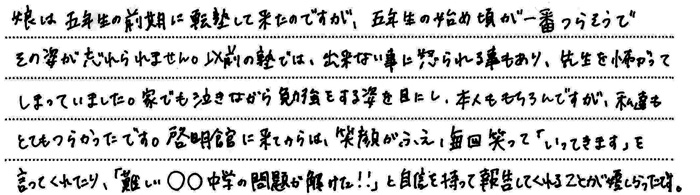 娘は五年生の前期に転塾して来たのですが、五年生の始め頃が一番つらそうで
その姿が忘れられません。以前の塾では、出来ない事に怒られる事もあり、先生を怖がって
しまっていました。家でも泣きながら勉強をする姿を目にし、本人ももちろんですが、私達も
とてもつらかったです。啓明館に来てからは、笑顔がふえ、毎回笑って「いってきます」を
言ってくれたり、「難しい〇〇中学の問題が解けた!!」と自信を持って報告してくれることが嬉しかったです。